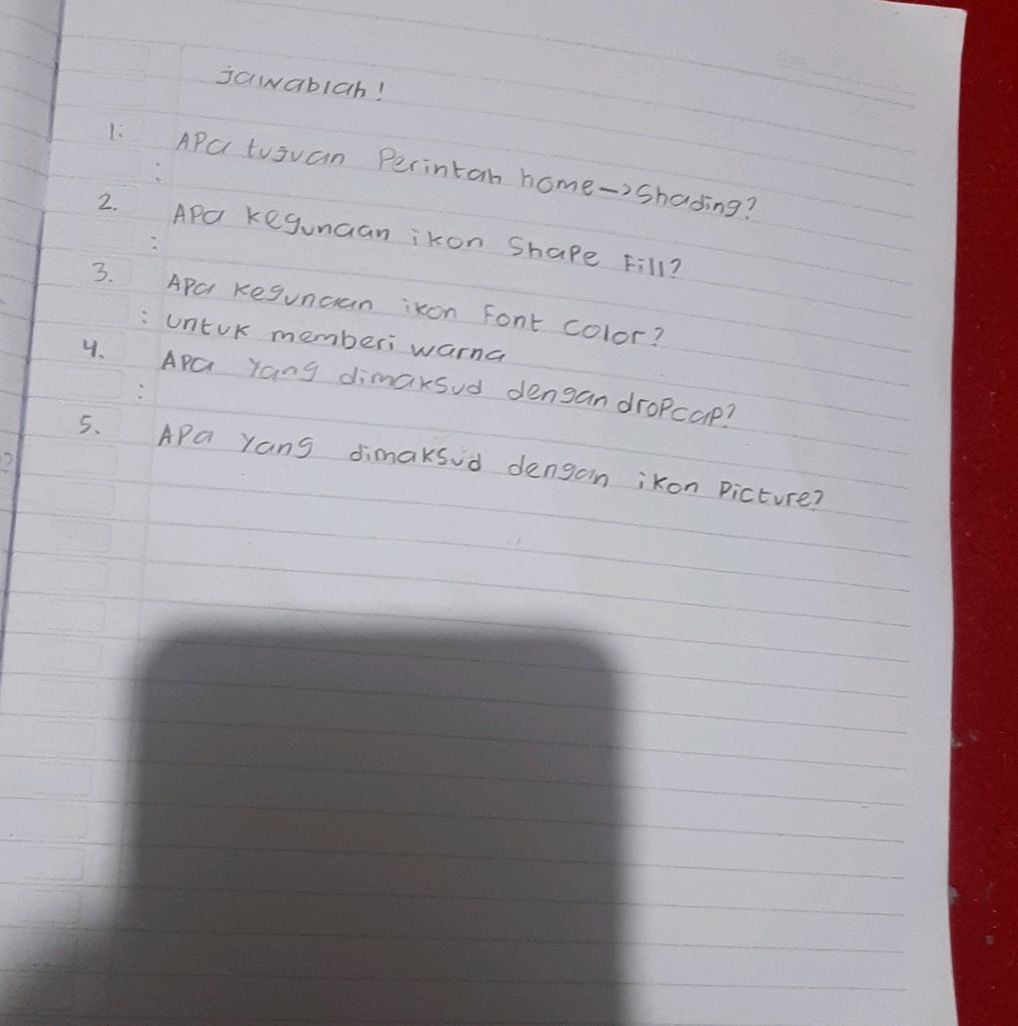 Jawablah!
1. Apa tujuan Perintah home->Shading?
:
2. Apa kegunaan ikon Shape Fill?
:
3. Apa kegunaan ikon Font Color?
: untuk memberi warna
4. Apa Yang dimaksud dengan dropcap?
:
5. Apa Yang dimaksud dengan ikon Picture?